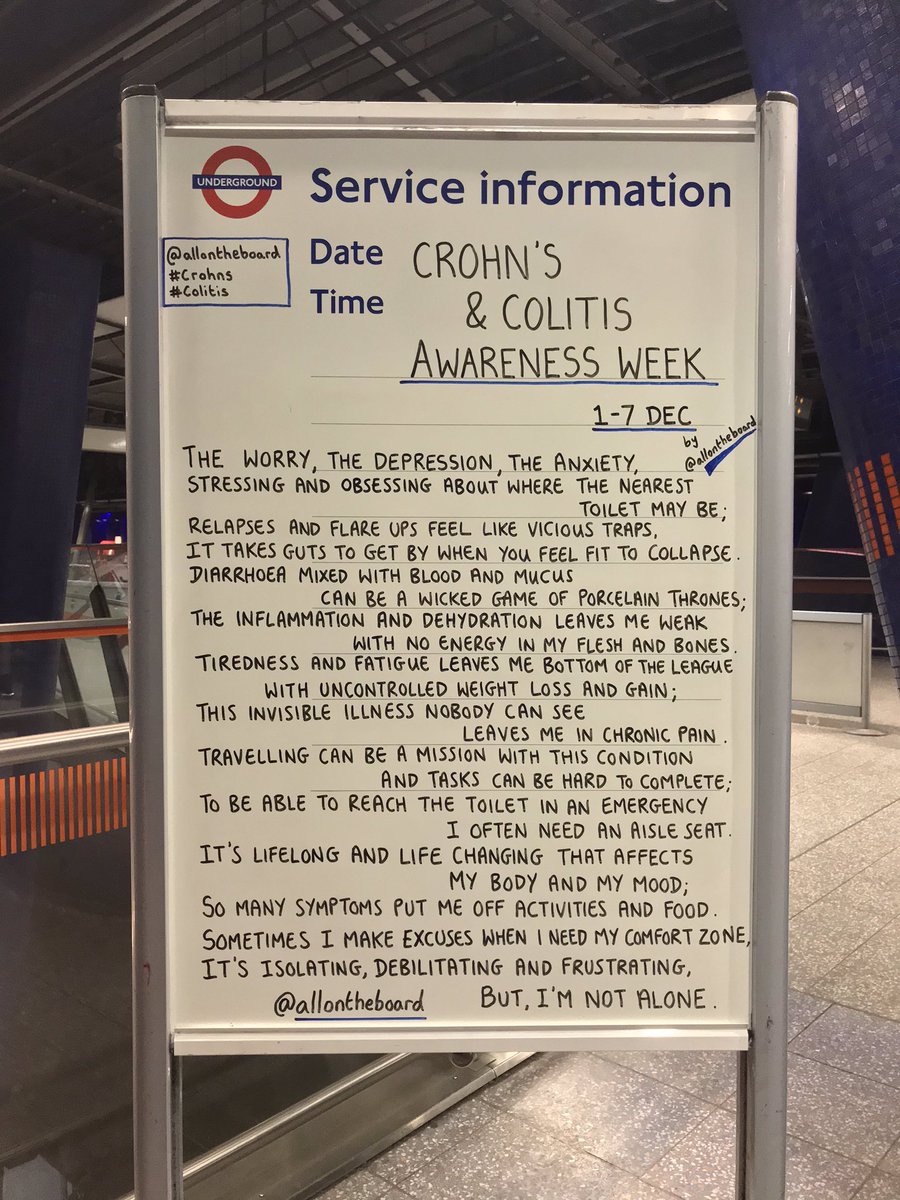 UNDERGROUND
Service information
@allontheboard
#Crohns
#Colitis
Date
Time
CROHN'S
& COLITIS
AWARENESS WEEK
1-7 DEC
by
@allontheboard
THE WORRY, THE DEPRESSION, THE ANXIETY,
STRESSING AND OBSESSING ABOUT WHERE THE NEAREST
TOILET MAY BE;
RELAPSES AND FLARE UPS FEEL LIKE VICIOUS TRAPS,
IT TAKES GUTS TO GET BY WHEN YOU FEEL FIT TO COLLAPSE.
DIARRHOEA MIXED WITH BLOOD AND MUCUS
CAN BE A WICKED GAME OF PORCELAIN THRONES;
THE INFLAMMATION AND DEHYDRATION LEAVES ME WEAK
WITH NO ENERGY IN MY FLESH AND BONES.
TIREDNESS AND FATIGUE LEAVES ME BOTTOM OF THE LEAGUE
WITH UNCONTROLLED WEIGHT LOSS AND GAIN;
THIS INVISIBLE ILLNESS NOBODY CAN SEE
LEAVES ME IN CHRONIC PAIN.
TRAVELLING CAN BE A MISSION WITH THIS CONDITION
AND TASKS CAN BE HARD TO COMPLETE;
TO BE ABLE TO REACH THE TOILET IN AN EMERGENCY
I OFTEN NEED AN AISLE SEAT.
IT'S LIFELONG AND LIFE CHANGING THAT AFFECTS
MY BODY AND MY MOOD;
SO MANY SYMPTOMS PUT ME OFF ACTIVITIES AND FOOD.
SOMETIMES I MAKE EXCUSES WHEN I NEED MY COMFORT ZONE,
IT'S ISOLATING, DEBILITATING AND FRUSTRATING,
BUT, I'M NOT ALONE.
@allontheboard